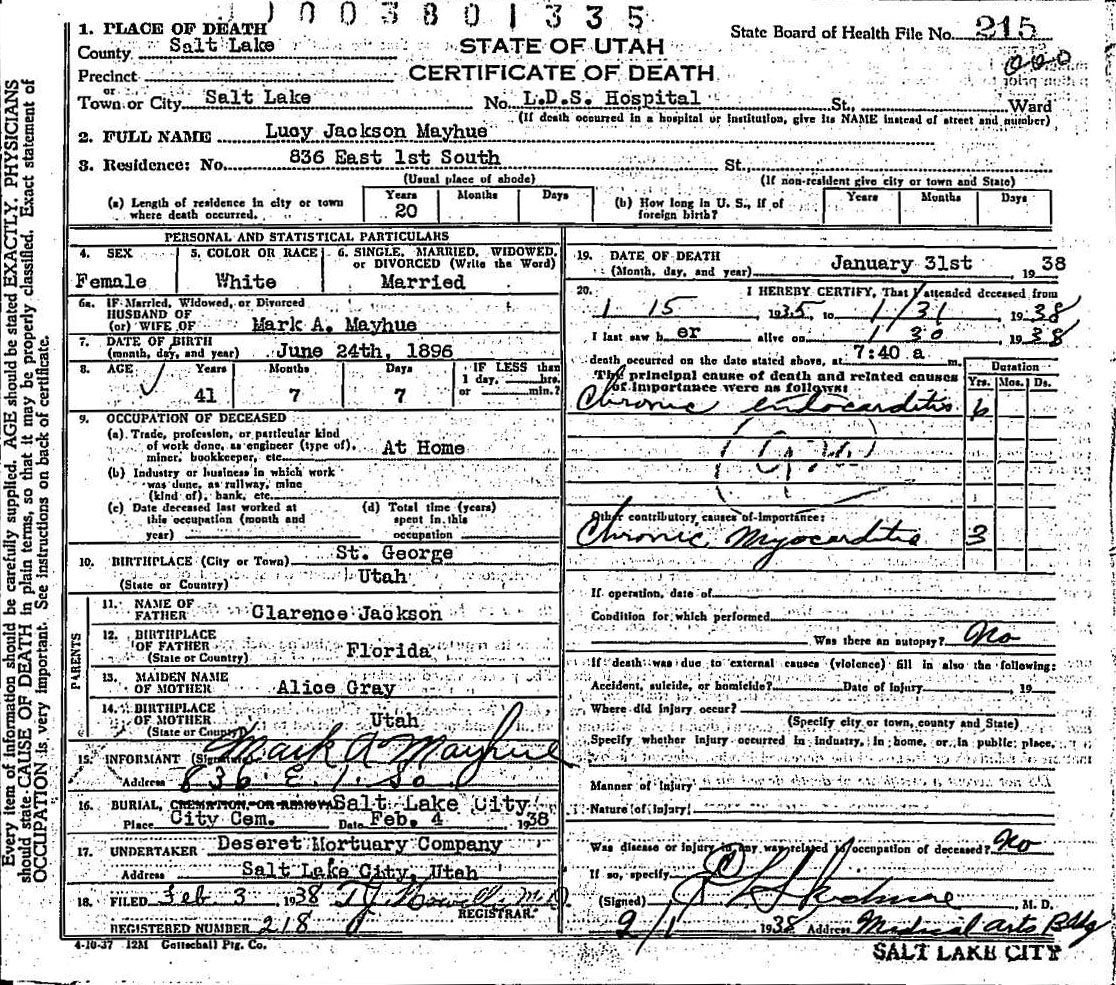 1003801335
1. PLACE OF DEATH
County Salt Lake
STATE OF UTAH
CERTIFICATE OF DEATH
State Board of Health File No. 215
000
Precinct
or
Town or City Salt Lake No. L.D.S. Hospital St., Ward
(If death occurred in a hospital or institution, give its NAME instead of street and number)
2. FULL NAME Lucy Jackson Mayhue
3. Residence: No. 836 East 1st South St.,
(Usual place of abode) (If non-resident give city or town and State)
(a) Length of residence in city or town where death occurred. Years 20 Months Days
(b) How long in U. S., if of foreign birth? Years Months Days
PERSONAL AND STATISTICAL PARTICULARS
4. SEX Female
5. COLOR OR RACE White
6. SINGLE, MARRIED, WIDOWED, or DIVORCED (Write the Word) Married
6a. IF Married, Widowed, or Divorced
HUSBAND OF
(or) WIFE OF Mark A. Mayhue
7. DATE OF BIRTH
(month, day, and year) June 24th, 1896
8. AGE Years 41 Months 7 Days 7 IF LESS than 1 day, hrs. or min.?
9. OCCUPATION OF DECEASED
(a) Trade, profession, or particular kind
of work done, as engineer (type of),
miner, bookkeeper, etc. At Home
(b) Industry or business in which work
was done, as railway, mine
(kind of), bank, etc.
(c) Date deceased last worked at
this occupation (month and
year)
(d) Total time (years)
spent in this
occupation
10. BIRTHPLACE (City or Town) St. George
(State or Country) Utah
PARENTS
11. NAME OF FATHER Clarence Jackson
12. BIRTHPLACE OF FATHER (State or Country) Florida
13. MAIDEN NAME OF MOTHER Alice Gray
14. BIRTHPLACE OF MOTHER (State or County) Utah
15. INFORMANT (Signature) Mark A Mayhue
Address 836 E. 1. So
16. BURIAL, CREMATION, OR REMOVAL Salt Lake City
Place City Cem. Date Feb. 4 1938
17. UNDERTAKER Deseret Mortuary Company
Salt Lake City, Utah
18. FILED Feb. 3 1938 M.D.
REGISTRAR
REGISTERED NUMBER 218
4-10-37 12M Gottschall Ptg. Co.
19. DATE OF DEATH
(Month, day, and year) January 31st 1938
20. I HEREBY CERTIFY, That I attended deceased from
1 15 1935, to 1/31 1938
I last saw her alive on 1 30 1938
death occurred on the date stated above, at 7:40 a m.
The principal cause of death and related causes
of importance were as follows:
Duration
Yrs. Mos. Ds.
Chronic endocarditis 6
Other contributory causes of importance:
Chronic Myocarditis 3
If operation, date of
Condition for which performed
Was there an autopsy? No
If death was due to external causes (violence) fill in also the following:
Accident, suicide, or homicide? Date of injury 19
Where did injury occur?
(Specify city or town, county and State)
Specify whether injury occurred in industry, in home, or in public place,
Manner of injury
Nature of injury
Was disease or injury in any way related to occupation of deceased? No
If so, specify
(Signed) M. D.
2/1 1938 Address Medical Arts Bldg
SALT LAKE CITY
Every item of information should be carefully supplied. AGE should be stated EXACTLY. PHYSICIANS
should state CAUSE OF DEATH in plain terms, so that it may be properly classified. Exact statement of
OCCUPATION is very important. See instructions on back of certificate.